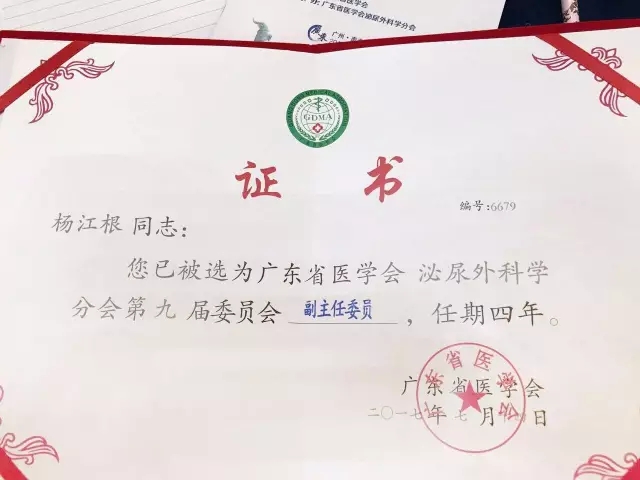 医学会
广东省医学会泌尿外科学分会
广州
GDMA
证书
编号:6679
杨江根 同志:
您已被选为广东省医学会 泌尿外科学
分会第九 届委员会 副主任委员 ,任期四年。
广东省医学会
二〇一七年七月 日